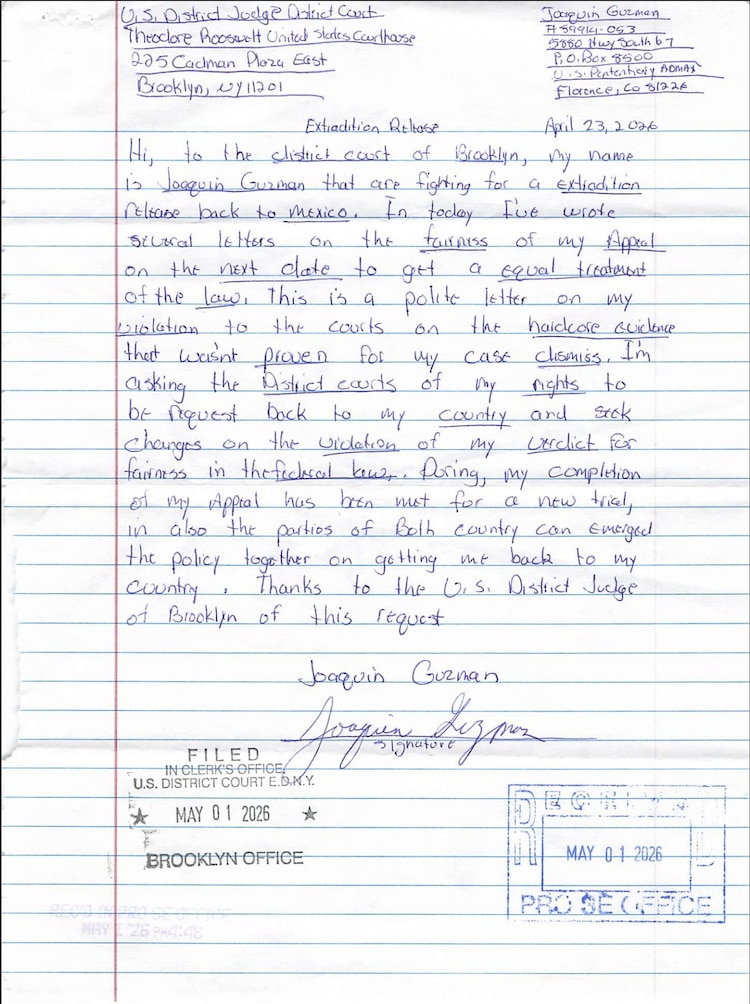 U.S. District Judge District Court
Theodore Roosevelt United States Courthouse
225 Cadman Plaza East
Brooklyn, NY 11201
Joaquin Guzman
# 89914-053
5880 Hwy South 67
P.O. Box 8500
U.S. Penitentiary ADMAX
Florence, Co 81226
Extradition Release
April 23, 2026
Hi, to the district court of Brooklyn, my name
is Joaquin Guzman that are fighting for a extradition
release back to mexico. In today I've wrote
several letters on the fairness of my Appeal
on the next date to get a equal treatment
of the law. This is a polite letter on my
violation to the courts on the hardcore evidence
that wasn't proven for my case dismiss. I'm
asking the District courts of my rights to
be request back to my country and seek
changes on the violation of my verdict for
fairness in the federal law. During, my completion
of my Appeal has been met for a new trial,
in also the parties of Both country can emerged
the policy together on getting me back to my
country. Thanks to the U.S. District Judge
of Brooklyn of this request
Joaquin Guzman
Joaquin Guzman
signature
FILED
IN CLERK'S OFFICE
U.S. DISTRICT COURT E.D.N.Y.
★ MAY 01 2026 ★
BROOKLYN OFFICE
MAY 01 2026
PRO SE OFFICE
REC'D IN PRO SE OFFICE
MAY 1 '26 PM4:48